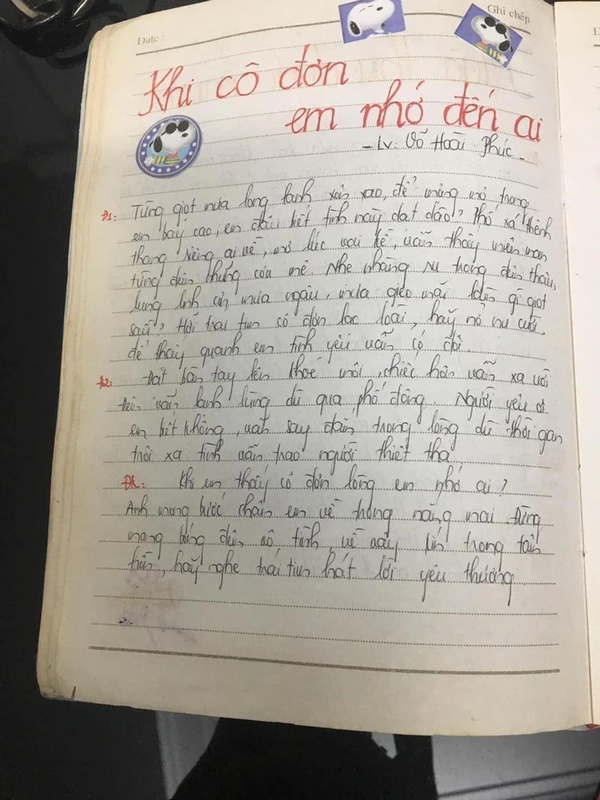 Date :
Ghi chép
Khi cô đơn
em nhớ đến ai
- Lv: Võ Hoài Phúc -
Đ1: Từng giọt mưa long lanh xôn xao, để mộng mơ trong
em bay cao, em đâu biết tình này dạt dào? Phố xá thênh
thang riêng ai về, vẫn thấy miên man
từng đêm những cơn mê. Nhẹ nhàng ru trong đêm thâu,
lung linh cơn mưa ngâu, mưa gieo mãi làm gì giọt
sầu? Hỡi trái tim cô đơn lạc loài, hãy nở nụ cười,
để thấy quanh em tình yêu vẫn có đôi.
Đ2: Đặt bàn tay lên khoé môi, chiếc hôn vẫn xa vời
đêm vẫn lạnh lùng dù qua phố đông. Người yêu ơi
em biết không, vẫn say đắm trong lòng dù thời gian
trôi xa tình vẫn trao người thiết tha.
Đk: Khi em thấy cô đơn lòng em nhớ ai?
Anh mong bước chân em về trong nắng mai. Đừng
mang bóng đêm vô tình, về vây kín trong tâm
hồn, hãy nghe trái tim hát lời yêu thương